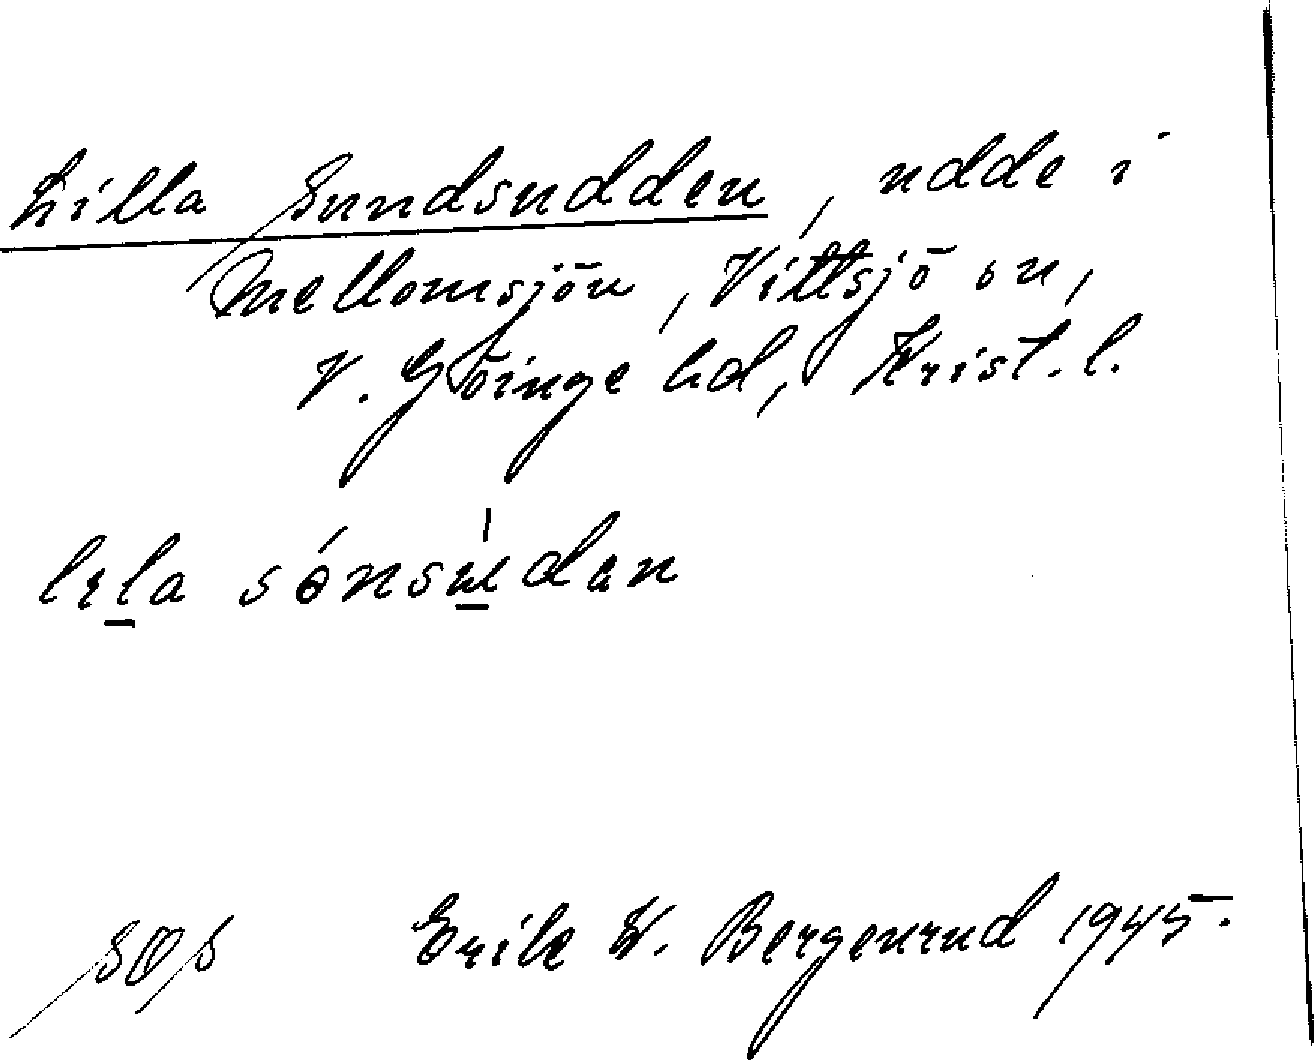 Lilla Sundsudden, udde i
Mellomsjön, Vittsjö sn,
V. Göinge hd, Krist. l.
lɪla
SOS Erik W. Bergenrud 1945.